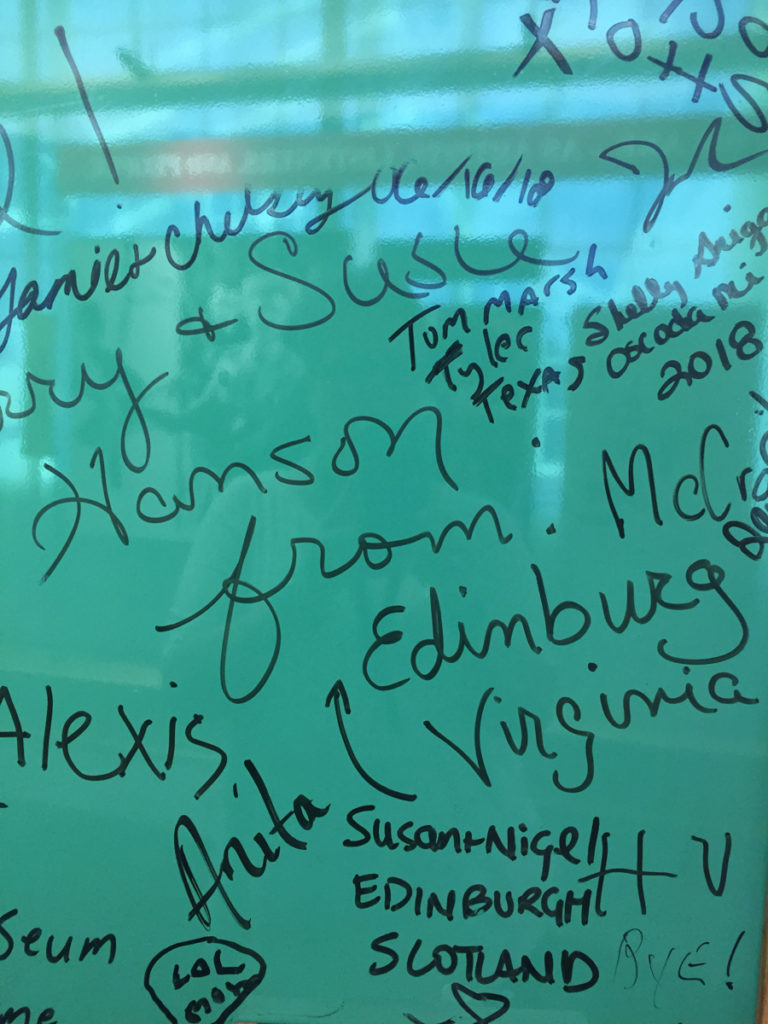 XioJO
XX
Jamie & Chelsey 06/16/18
rry & Susie
Tom MARsh
Tyler
TEXAS
Shelly
Oscoda Mi
2018
Hanson
from
McCr
Edinburg
Virginia
Alexis
Anita
Susan+Nigel
EDINBURGH
SCOTLAND
H U
BYE!
seum
LOL
me